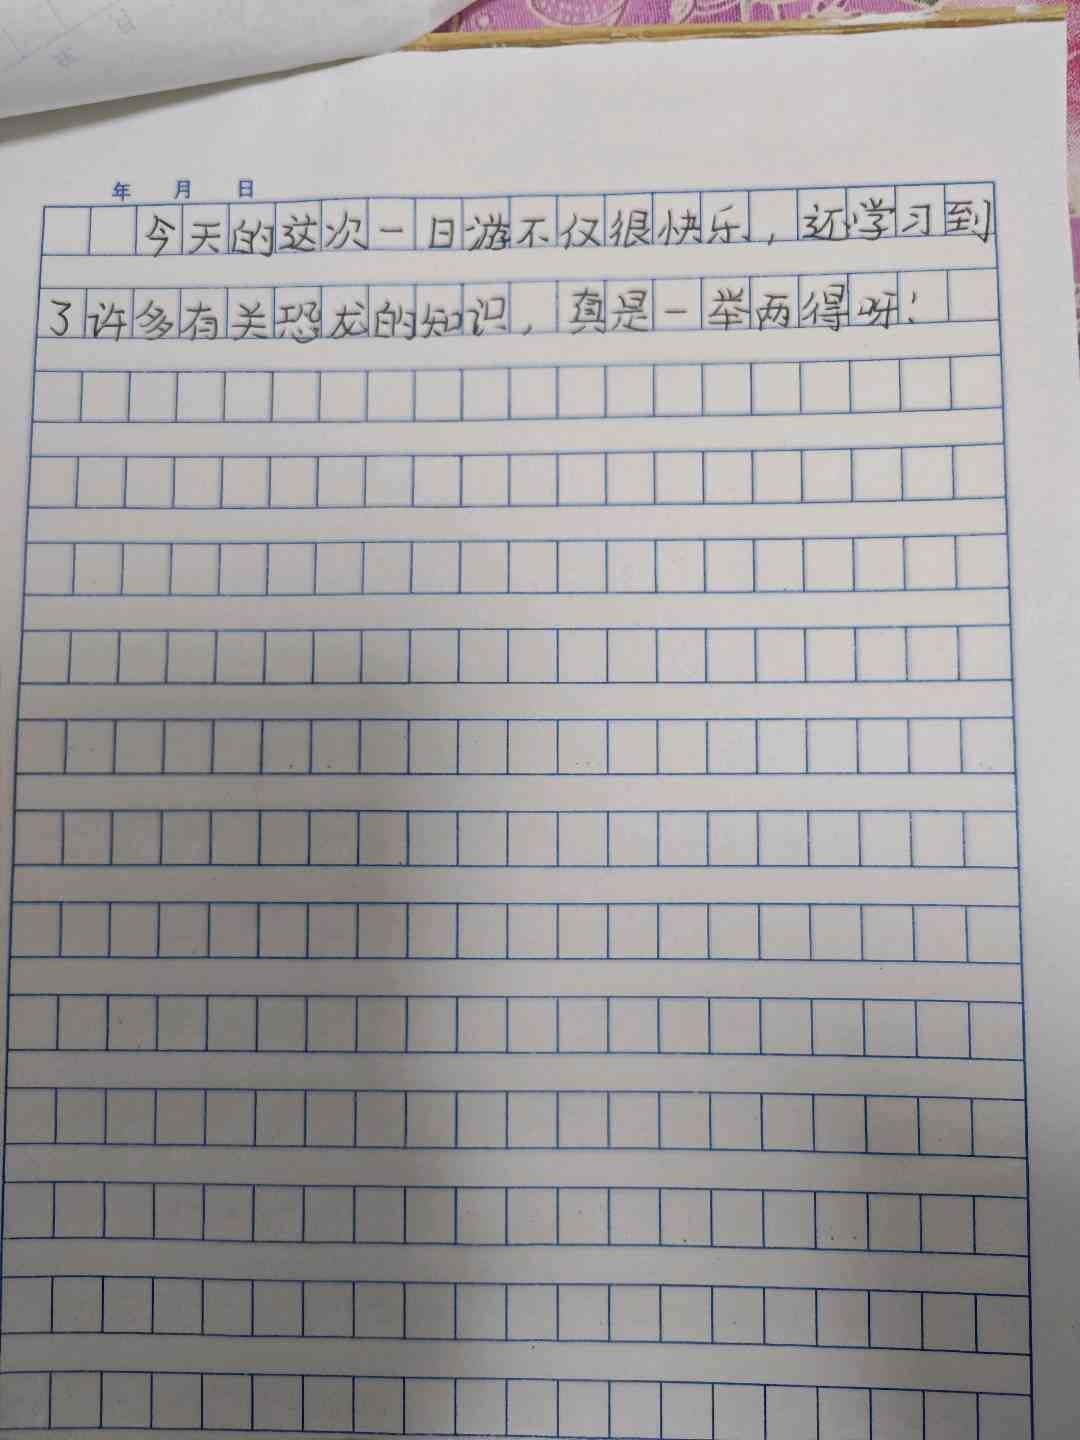 年 月 日
今天的这次一日游不仅很快乐，还学习到
了许多有关恐龙的知识，真是一举两得呀！